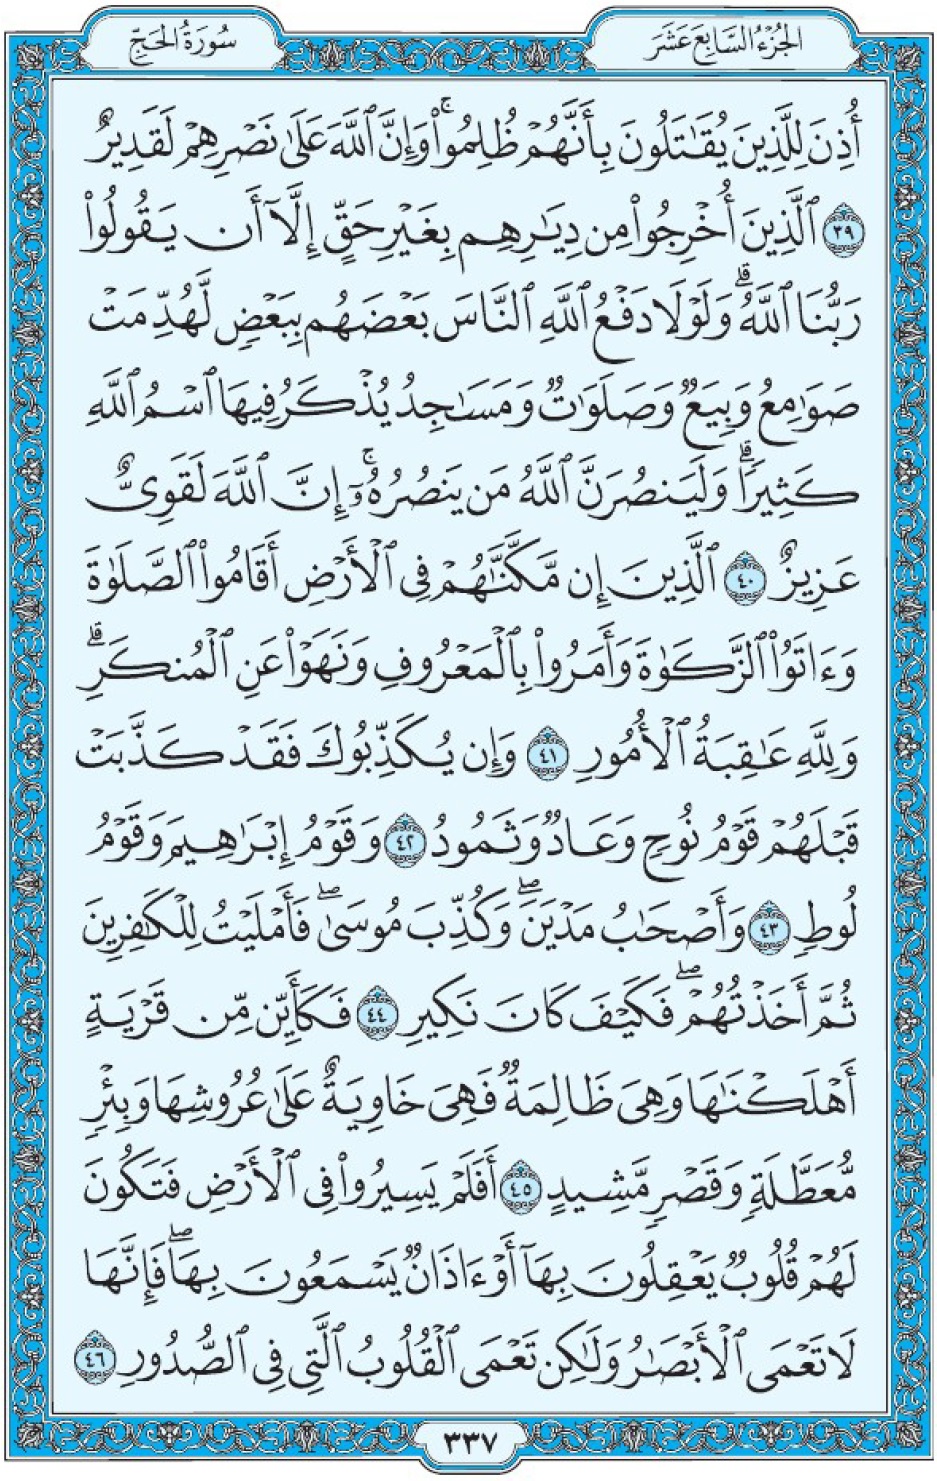 الجُزْءُ السَّابِعَ عَشَرَ
سُورَةُ الحَجّ
أُذِنَ لِلَّذِينَ يُقَٰتَلُونَ بِأَنَّهُمۡ ظُلِمُواْۚ وَإِنَّ ٱللَّهَ عَلَىٰ نَصۡرِهِمۡ لَقَدِيرٌ
٣٩ ٱلَّذِينَ أُخۡرِجُواْ مِن دِيَٰرِهِم بِغَيۡرِ حَقٍّ إِلَّآ أَن يَقُولُواْ
رَبُّنَا ٱللَّهُۗ وَلَوۡلَا دَفۡعُ ٱللَّهِ ٱلنَّاسَ بَعۡضَهُم بِبَعۡضٖ لَّهُدِّمَتۡ
صَوَٰمِعُ وَبِيَعٞ وَصَلَوَٰتٞ وَمَسَٰجِدُ يُذۡكَرُ فِيهَا ٱسۡمُ ٱللَّهِ
كَثِيرٗاۗ وَلَيَنصُرَنَّ ٱللَّهُ مَن يَنصُرُهُۥٓۚ إِنَّ ٱللَّهَ لَقَوِيٌّ
عَزِيزٌ ٤٠ ٱلَّذِينَ إِن مَّكَّنَّٰهُمۡ فِي ٱلۡأَرۡضِ أَقَامُواْ ٱلصَّلَوٰةَ
وَءَاتَوُاْ ٱلزَّكَوٰةَ وَأَمَرُواْ بِٱلۡمَعۡرُوفِ وَنَهَوۡاْ عَنِ ٱلۡمُنكَرِۗ
وَلِلَّهِ عَٰقِبَةُ ٱلۡأُمُورِ ٤١ وَإِن يُكَذِّبُوكَ فَقَدۡ كَذَّبَتۡ
قَبۡلَهُمۡ قَوۡمُ نُوحٖ وَعَادٞ وَثَمُودُ ٤٢ وَقَوۡمُ إِبۡرَٰهِيمَ وَقَوۡمُ
لُوطٖ ٤٣ وَأَصۡحَٰبُ مَدۡيَنَۖ وَكُذِّبَ مُوسَىٰۖ فَأَمۡلَيۡتُ لِلۡكَٰفِرِينَ
ثُمَّ أَخَذۡتُهُمۡۖ فَكَيۡفَ كَانَ نَكِيرِ ٤٤ فَكَأَيِّن مِّن قَرۡيَةٍ
أَهۡلَكۡنَٰهَا وَهِيَ ظَالِمَةٞ فَهِيَ خَاوِيَةٌ عَلَىٰ عُرُوشِهَا وَبِئۡرٖ
مُّعَطَّلَةٖ وَقَصۡرٖ مَّشِيدٍ ٤٥ أَفَلَمۡ يَسِيرُواْ فِي ٱلۡأَرۡضِ فَتَكُونَ
لَهُمۡ قُلُوبٞ يَعۡقِلُونَ بِهَآ أَوۡ ءَاذَانٞ يَسۡمَعُونَ بِهَاۖ فَإِنَّهَا
لَا تَعۡمَى ٱلۡأَبۡصَٰرُ وَلَٰكِن تَعۡمَى ٱلۡقُلُوبُ ٱلَّتِي فِي ٱلصُّدُورِ ٤٦
٣٣٧